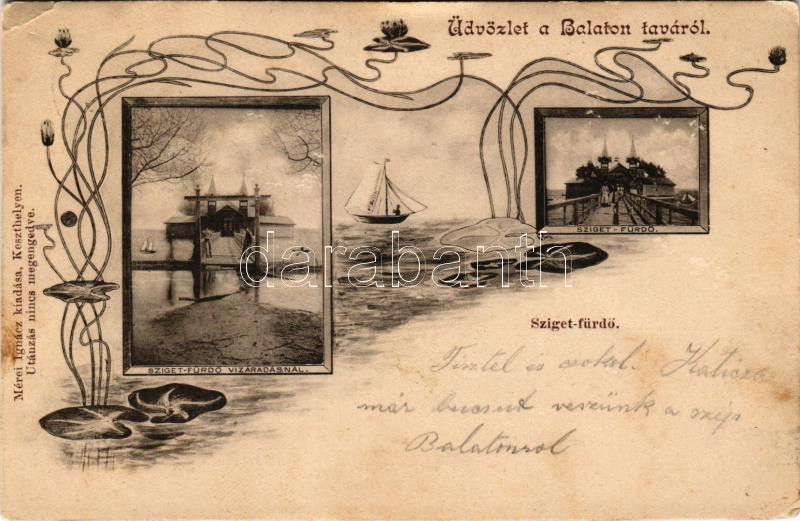 Üdvözlet a Balaton taváról.
SZIGET-FÜRDŐ VIZÁRADÁSNÁL.
SZIGET-FÜRDŐ.
Sziget-fürdő.
Mérei Ignácz kiadása, Keszthelyen.
Utánzás nincs megengedve.
Tisztel és csokol. Katicza
már bucsut veszünk a szép
Balatonrol
darabanth